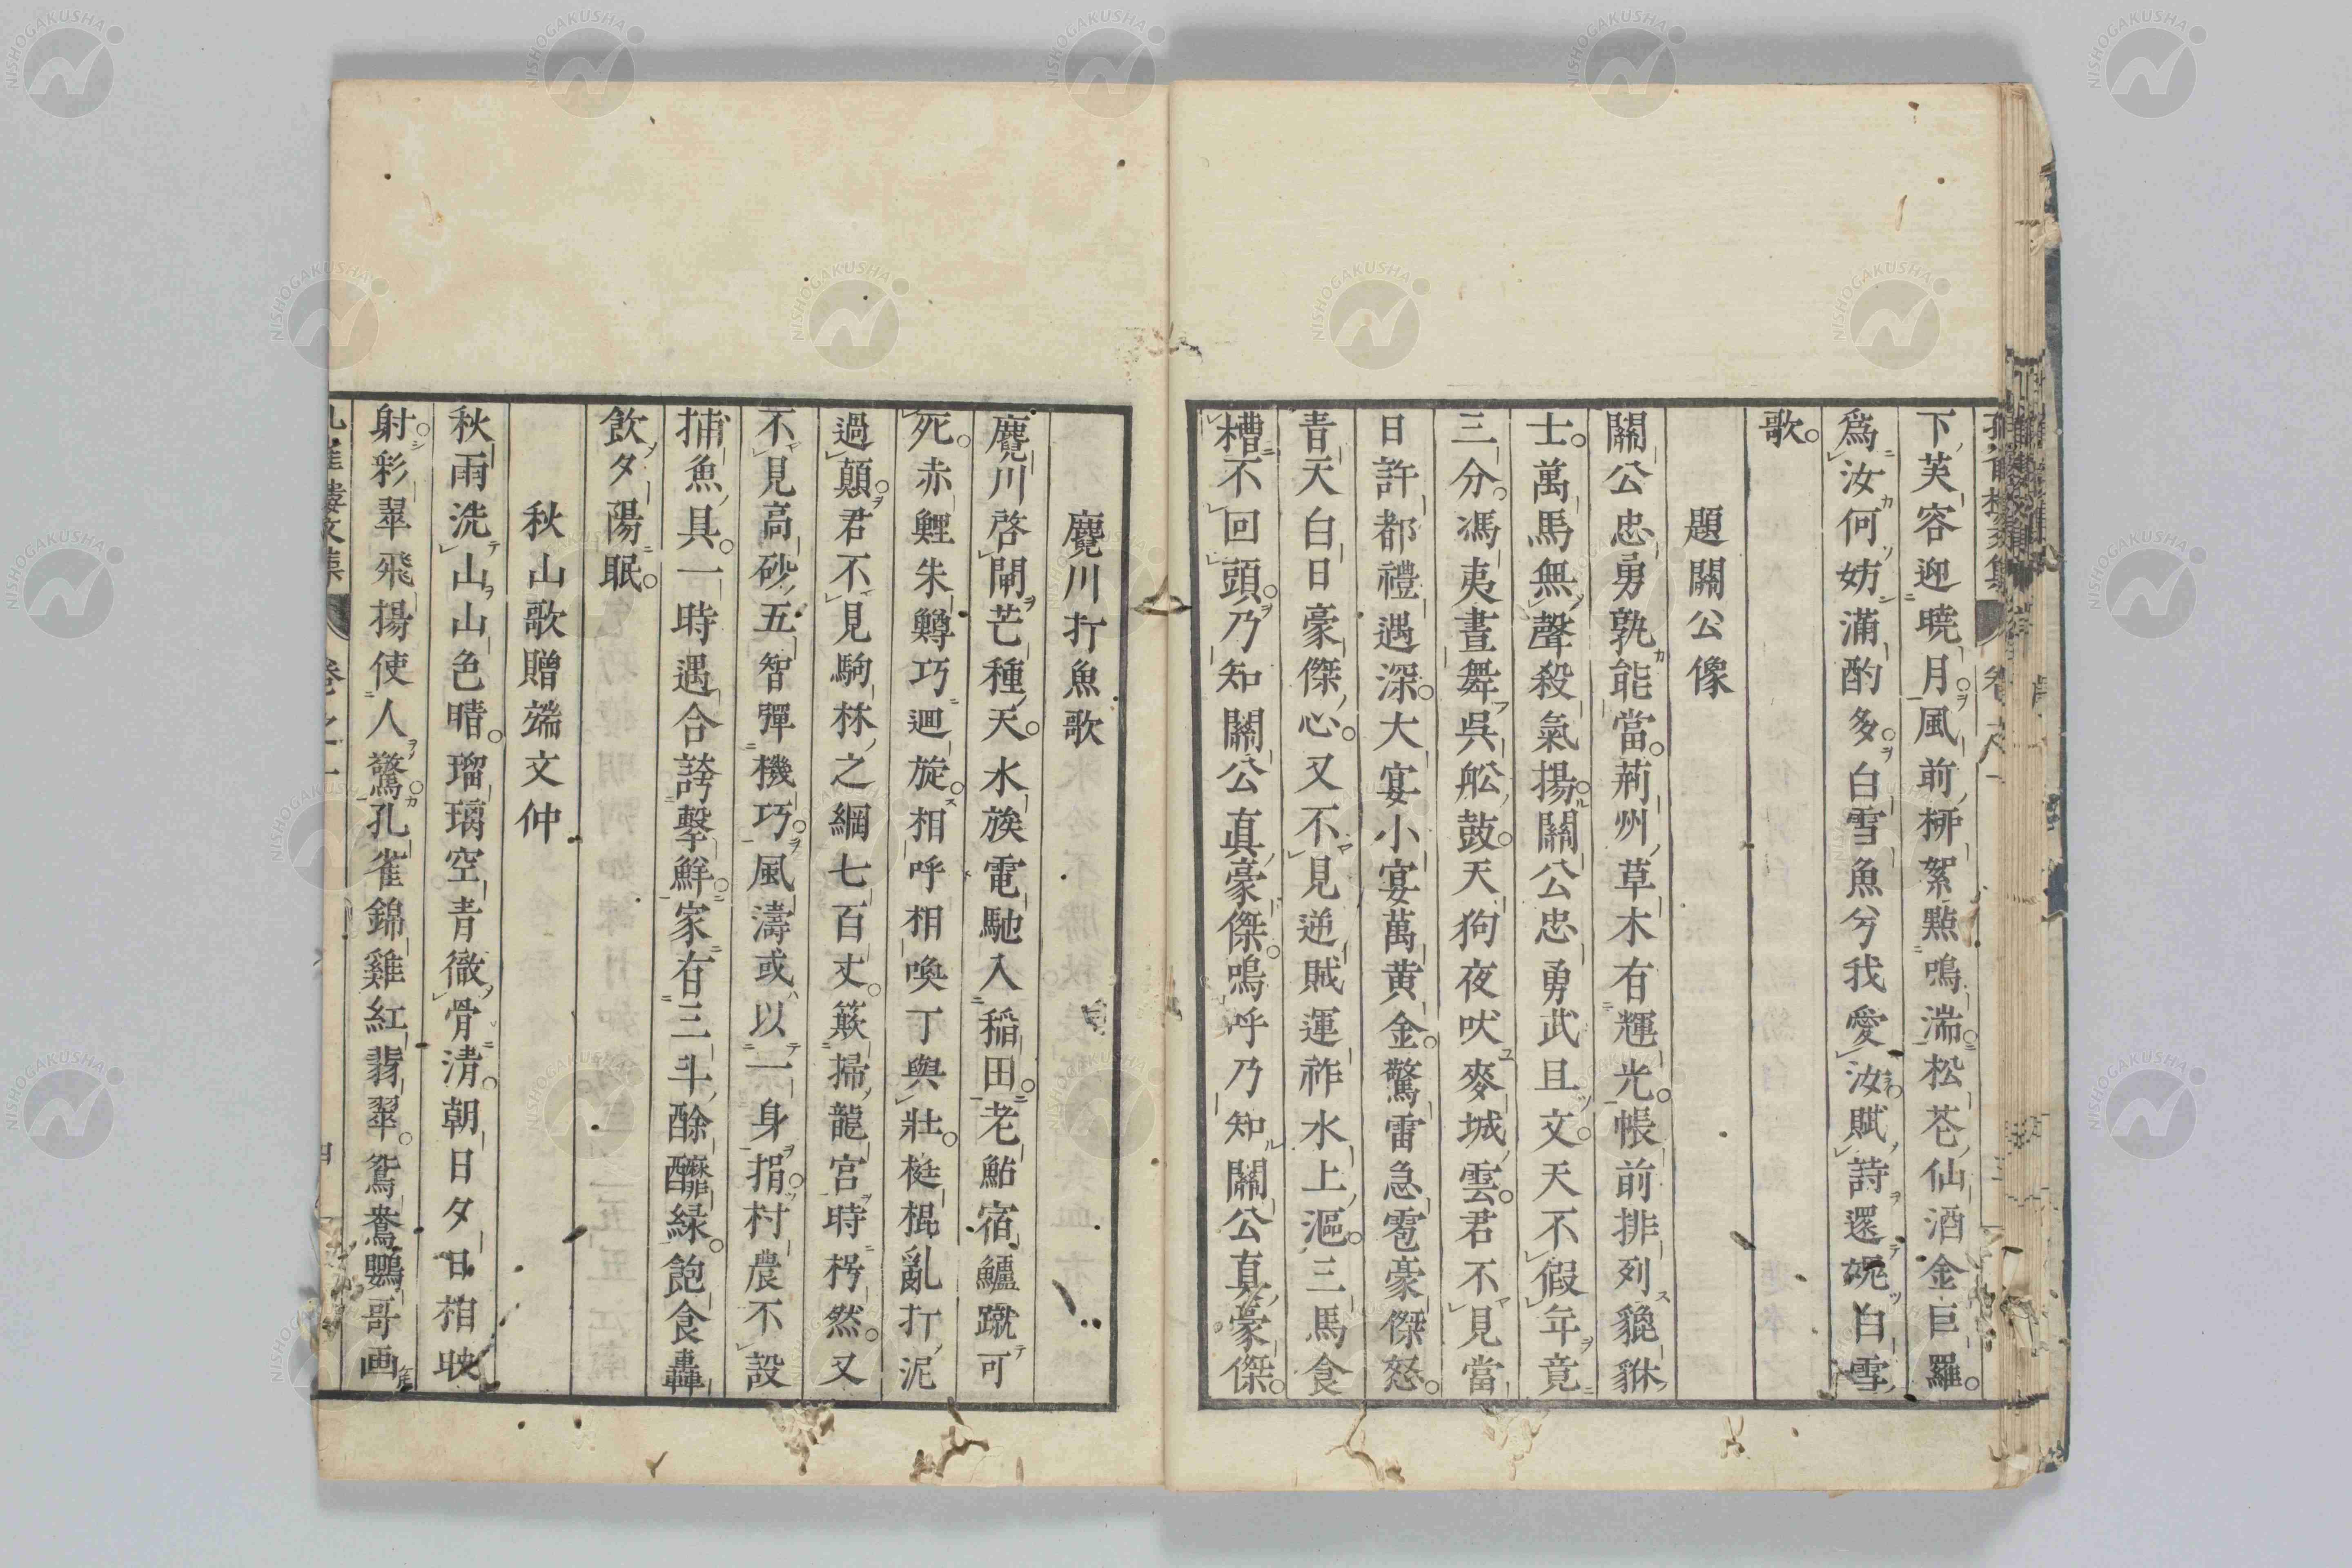 下芙容迎暁月風前栁絮點鳴湍松苍仙酒金巨羅
爲汝何妨滿酌多白雪魚兮我愛汝賦詩還婗白雪
歌
題關公像
關公忠勇孰能當荊州草木有輝光帳前排列貔貅
士萬馬無聲殺氣揚關公忠勇武且文天不假年竟
三分馮夷晝舞吳舩鼓天狗夜吠麥城雲君不見當
日許都禮遇深大宴小宴萬黄金驚雷急雹豪傑怒
青天白日豪傑心又不見逆賊運祚水上漚三馬食
槽不回頭乃知關公真豪傑嗚呼乃知關公真豪傑
麑川打魚歌
麑川啓閘芒種天水族電馳入稲田老鮎宿鱸蹴可
死赤鯉朱鱒巧迴旋相呼相喚丁與壯梃棍亂打泥
過顛君不見駒林之綱七百丈簸掃龍宮時枵然又
不見高砂五智彈機巧風濤或以一身捐村農不設
捕魚具一時遇合誇擊鮮家有三斗酴醿緑飽食轟
飲夕陽眠
秋山歌贈端文仲
秋雨洗山山色晴瑠璃空青徹骨清朝日夕日相映
射彩翠飛揚使人驚孔雀錦雞紅翡翠鴛鴦鸚哥画
NISHOGAKUSHA